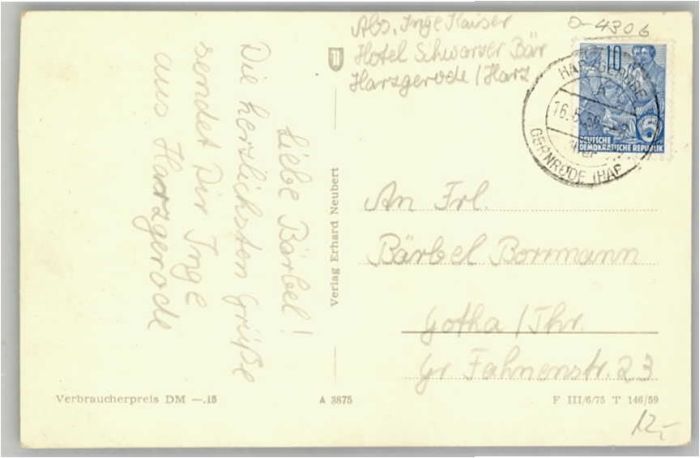 Abs. Inge Kaiser
Hotel Schwarzer Bär
Harzgerode / Harz
D-4306
10
5
DEUTSCHE
DEMOKRATISCHE REPUBLIK
GERNRODE (HARZ
Liebe Bärbel!
Die herzlichsten Grüße
sendet Dir Inge
aus Harzgerode
Verlag Erhard Neubert
An Frl.
Bärbel Borrmann
Gotha / Thr.
Gr Fahnenstr. 23
Verbraucherpreis DM —.15
A 3875
F III/6/75 T 146/59
12,-